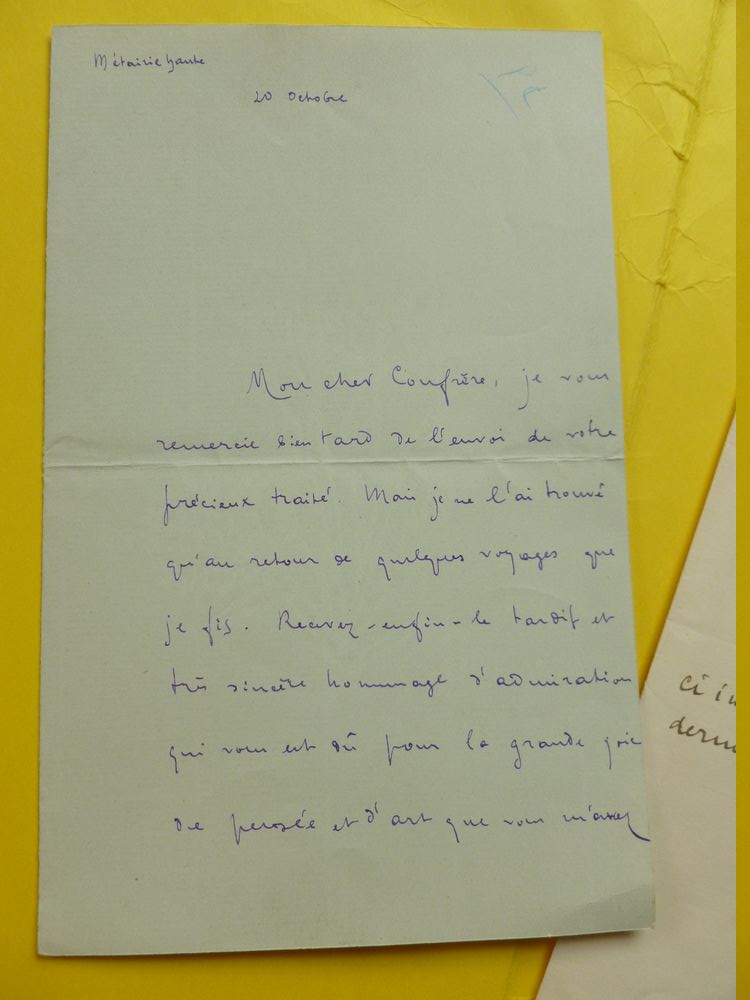 Métairie haute
20 Octobre
Mon cher Confrère, je vous
remercie bien tard de l'envoi de votre
précieux traité. Mais je ne l'ai trouvé
qu'au retour de quelques voyages que
je fis. Recevez-enfin-le tardif et
très sincère hommage d'admiration
qui vous est dû pour la grande joie
de pensée et d'art que vous m'avez
ci in
dern